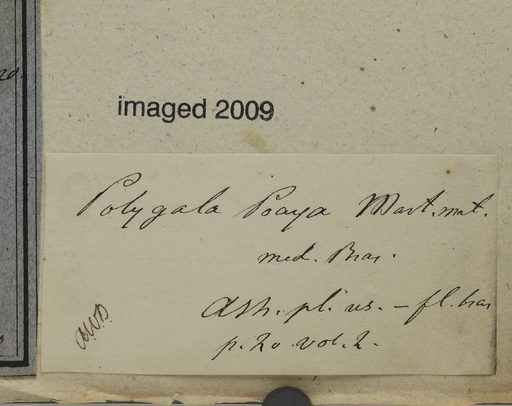 imaged 2009
Polygala Poaya Mart. mat.
med. Bras.
ASH. pl. us. – fl. bras
p. 20 vol. 2.
AWB